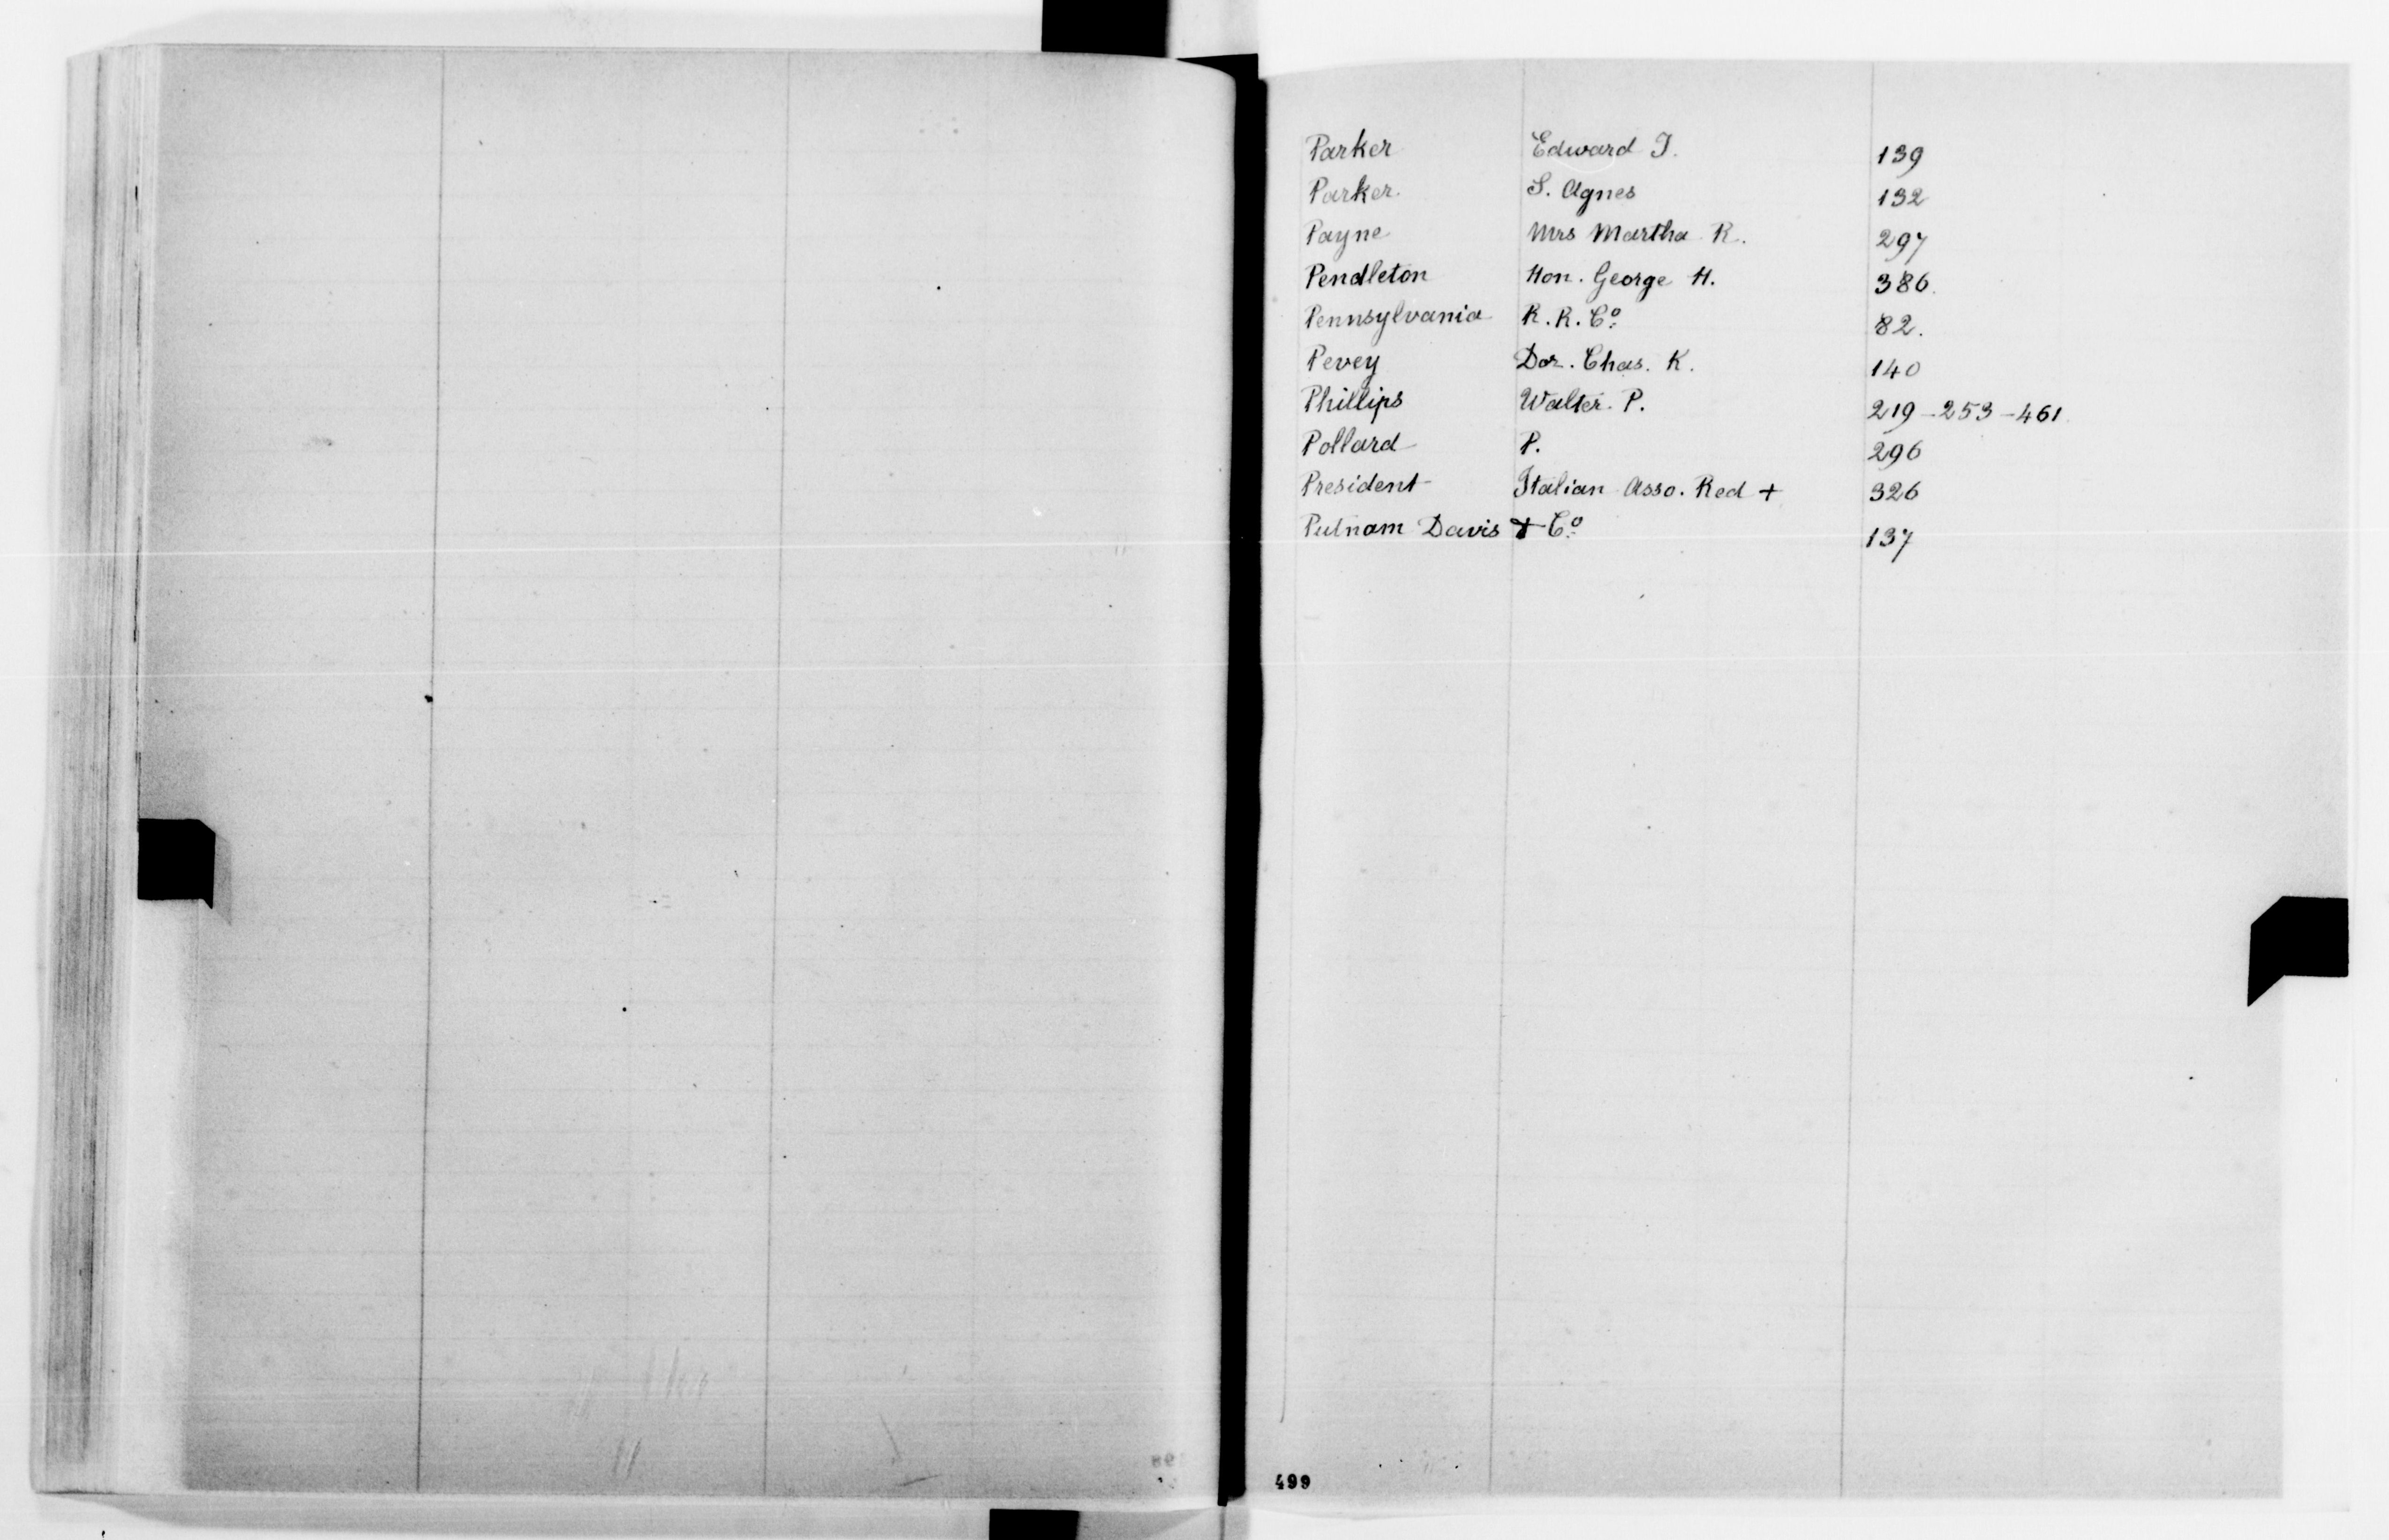 Parker Edward J. 139
Parker. S. Agnes 132
Payne Mrs Martha R. 297
Pendleton Hon. George H. 386.
Pennsylvania R. R. Co. 82.
Pevey Dor. Chas. K. 140
Phillips Walter. P. 219-253-461
Pollard P. 296
President Italian Asso. Red + 326
Putnam Davis + Co. 137
499